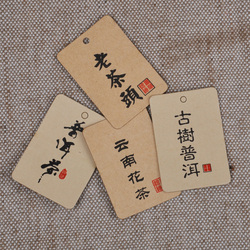 老茶頭
古樹普洱
云南花茶
普洱茶